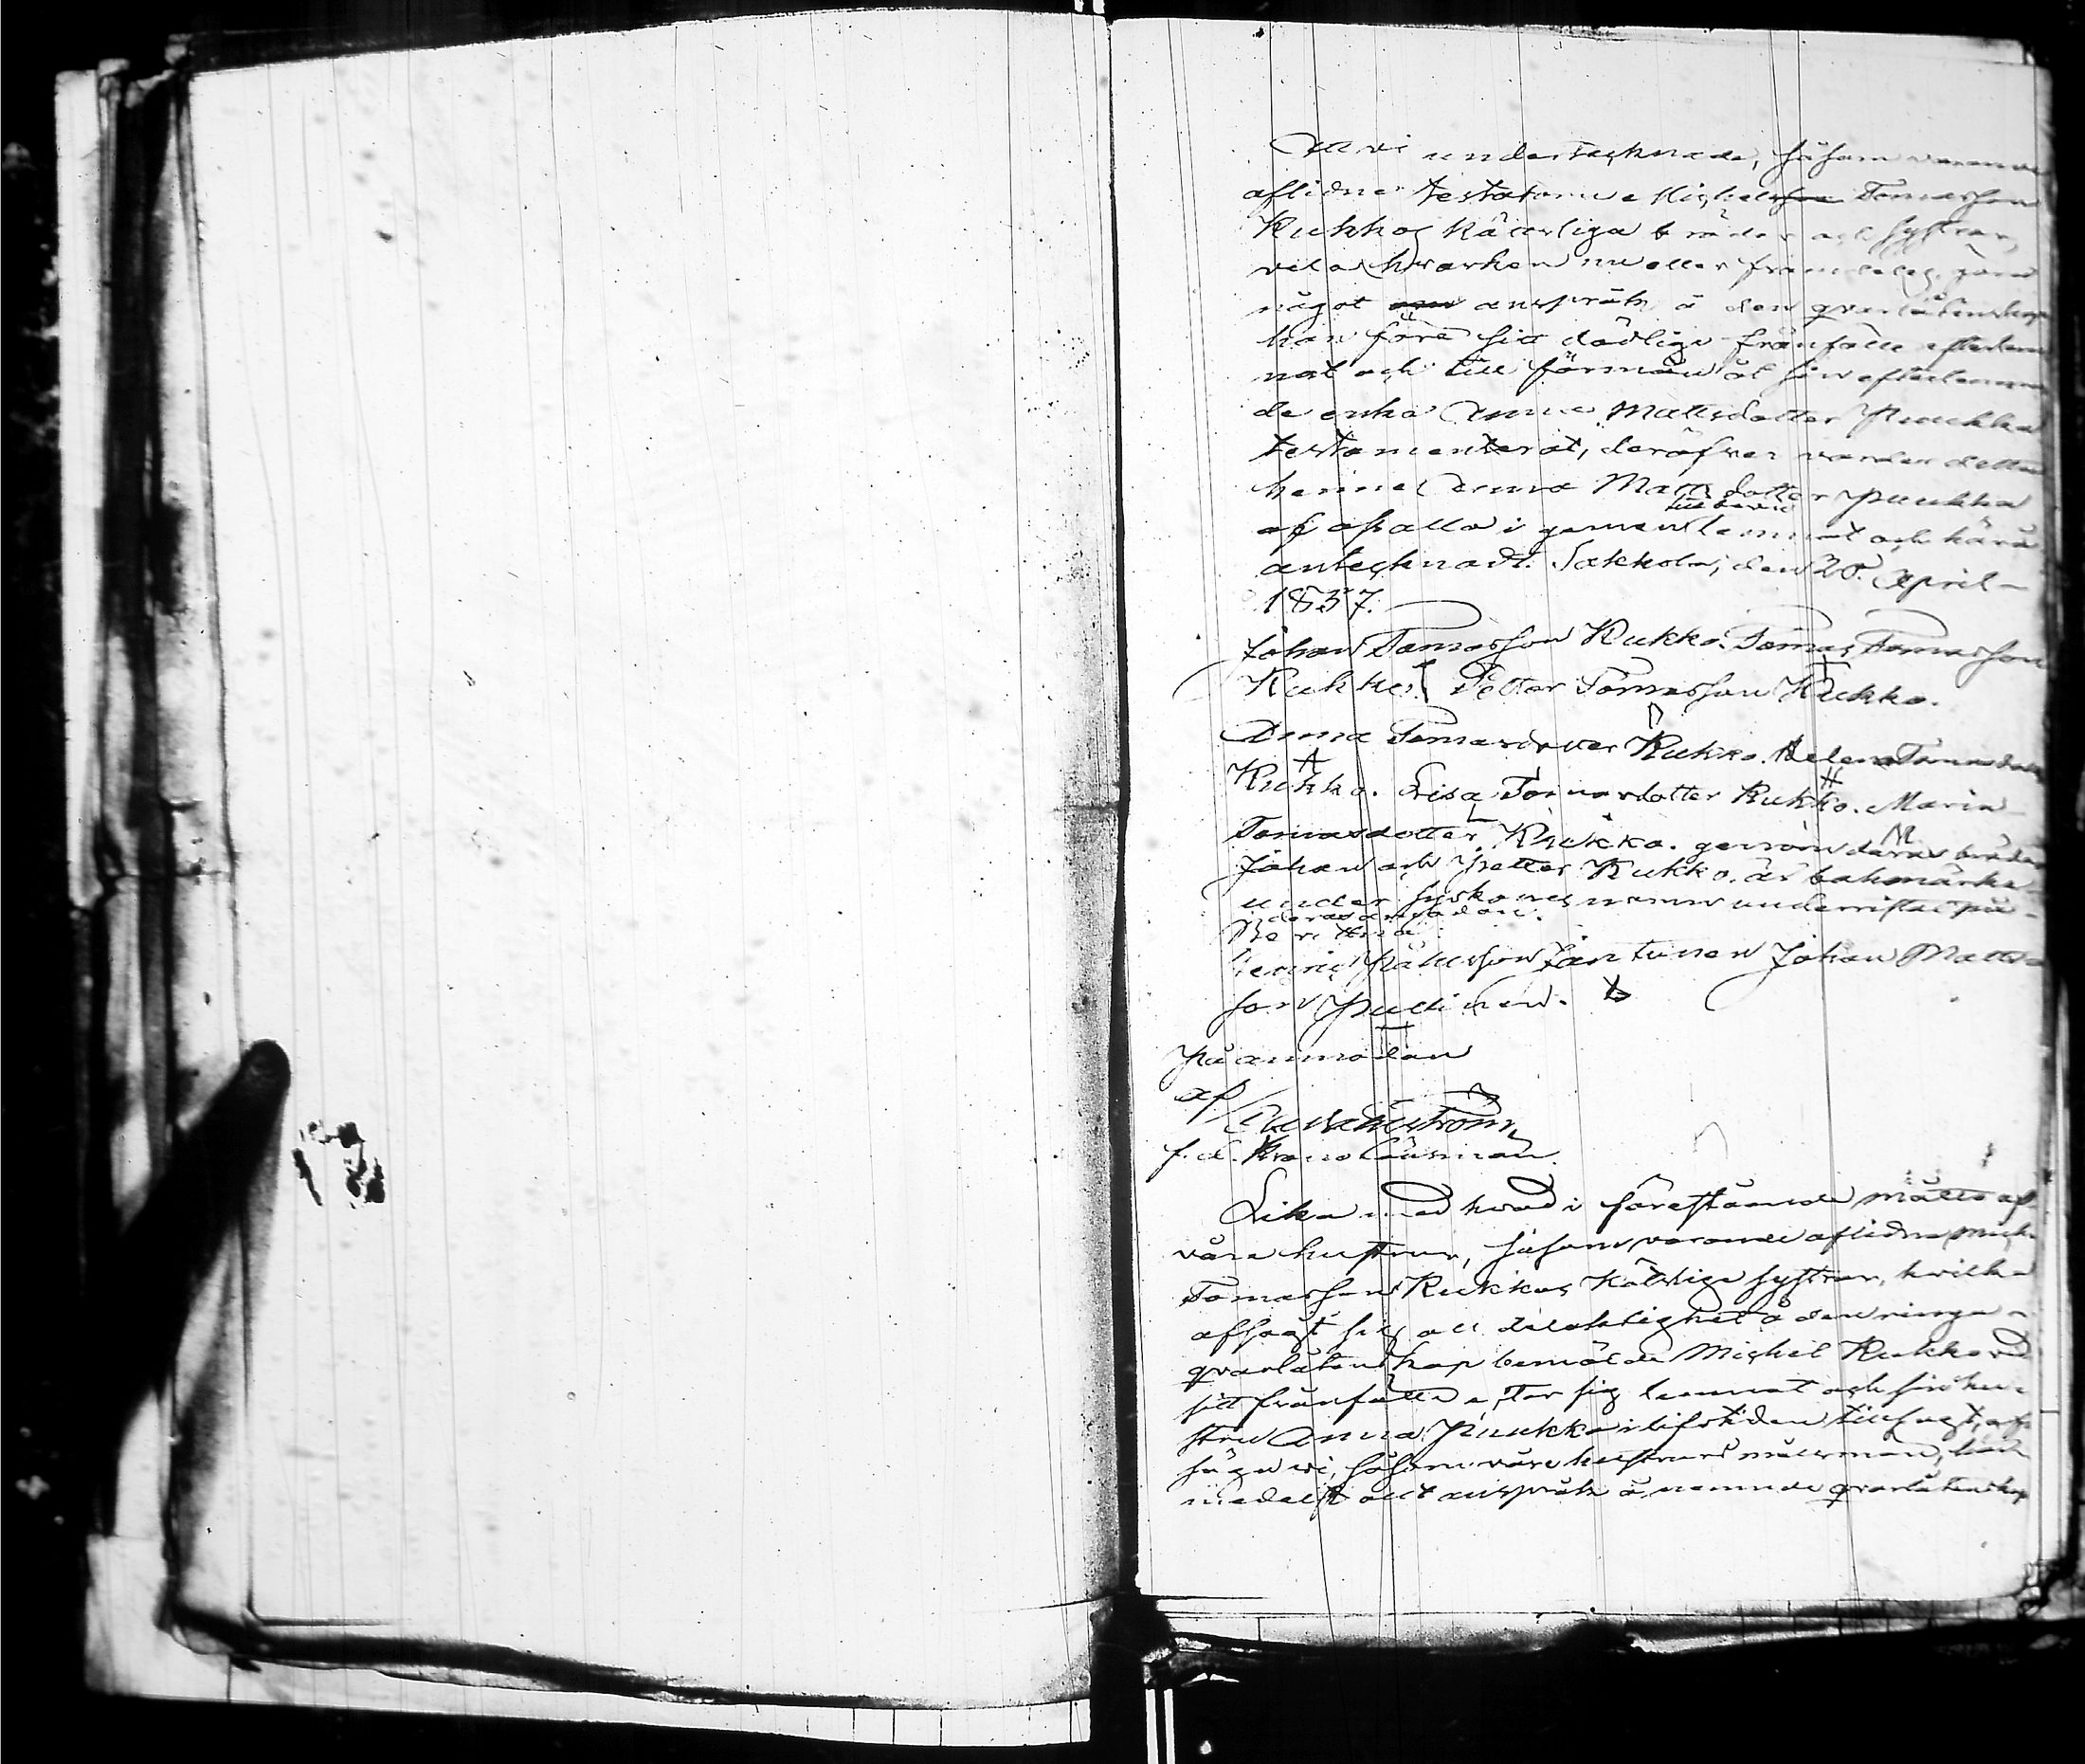 At vi undertecknade, såsom varande
aflidne testatorn Michel Tomasson
Rukkos kärliga bröder och systrar,
vela hvarken nu eller framdeles göra
något anspråk å den qvarlåtenskap
han före sitt dödliga frånfälle efterlem
nat och till förmån åt sin efterlemnan
de enka Anna Mattsdotter Puukka
testamenterat, deröfver warder detta
henne Anna Mattsdotter Puukka
till bevis
af oss alla i gemen lemnat och härå
antecknadt. Sakkola, den 20. April
1837.
Johan Tomasson Rukko. Tomas Tomasson
Rukko. Petter Tomasson Rukko.
Anna Tomasdotter Rukko. Helena Tomasdotter
Rukko. Lisa Tomasdotter Rukko. Maria
Tomasdotter Rukko. genom deras bröder
Johan och Petter Rukko. är bomärke
under syskones namn underristat på
deras anmodan.
Bevittna:
Henric Pålsson Jantunen Johan Matts
son Pulli nen.
På anmodan
af
f. d. Krono Länsman.
Lika med hvad i förestående måtto af
våra hustrur, såsom varande aflidne Mich.
Tomasson Rukkos Kötsliga systrar, hvilka
afsagt sig all delaktighet å den ringa
qvarlåtenskap bemälde Michel Rukko vid
sitt frånfälle efter sig lemnat och sin hu
stru Anna Puukka i lifstiden tillsagt, af
säga vi, såsom våra hustrurs målsman, här
medelst allt anspråk å nemnde qvarlåtenskap